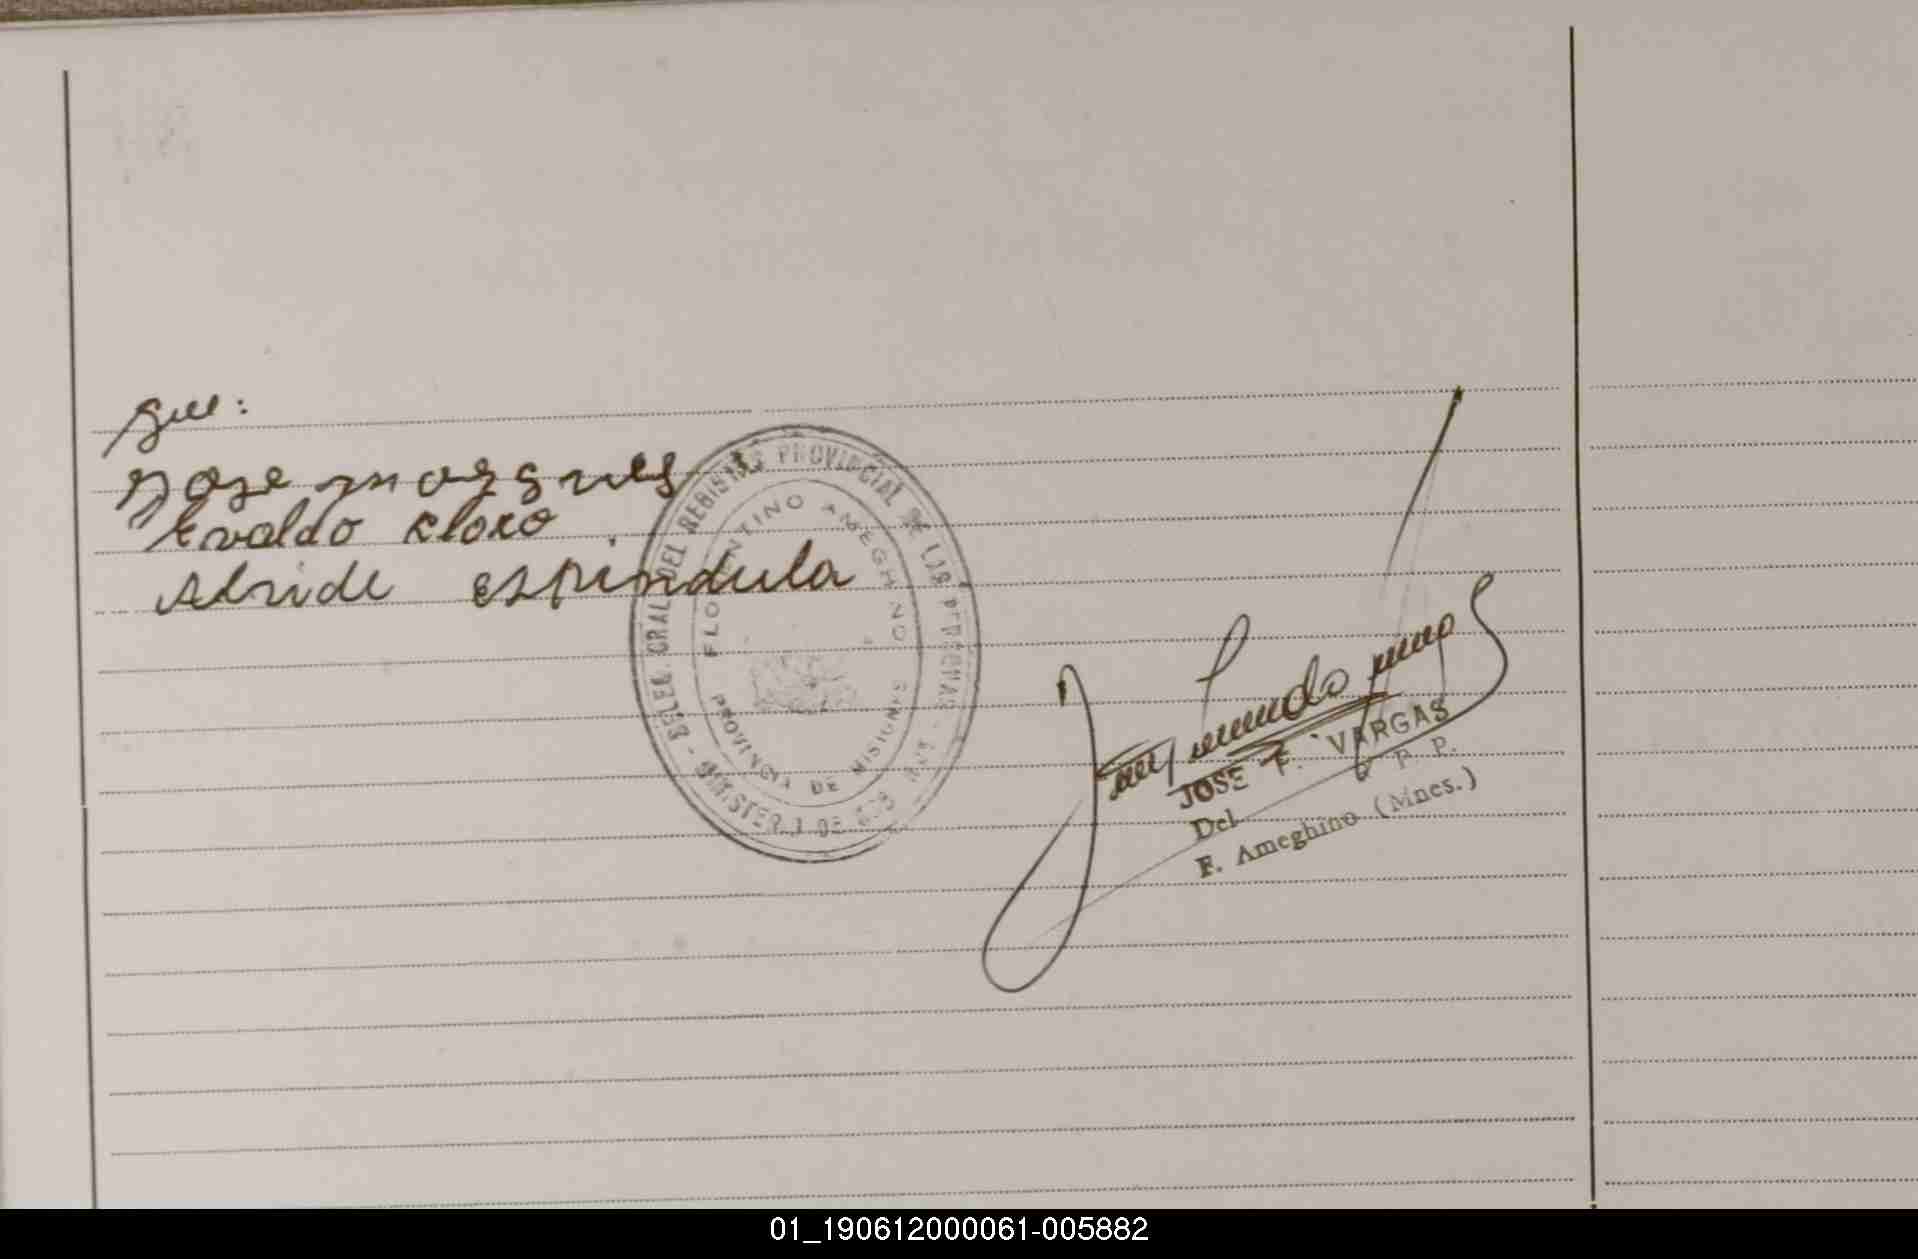 Jose marques
Evaldo claro
Alside espindula
DELEG. GRAL. DEL REGISTRO PROVINCIAL DE LAS PERSONAS
FLORENTINO AMEGHINO
PROVINCIA DE MISIONES
MINISTERIO DE GOB
JOSE F. VARGAS
Del R. P. P.
F. Ameghino (Mnes.)
01_190612000061-005882